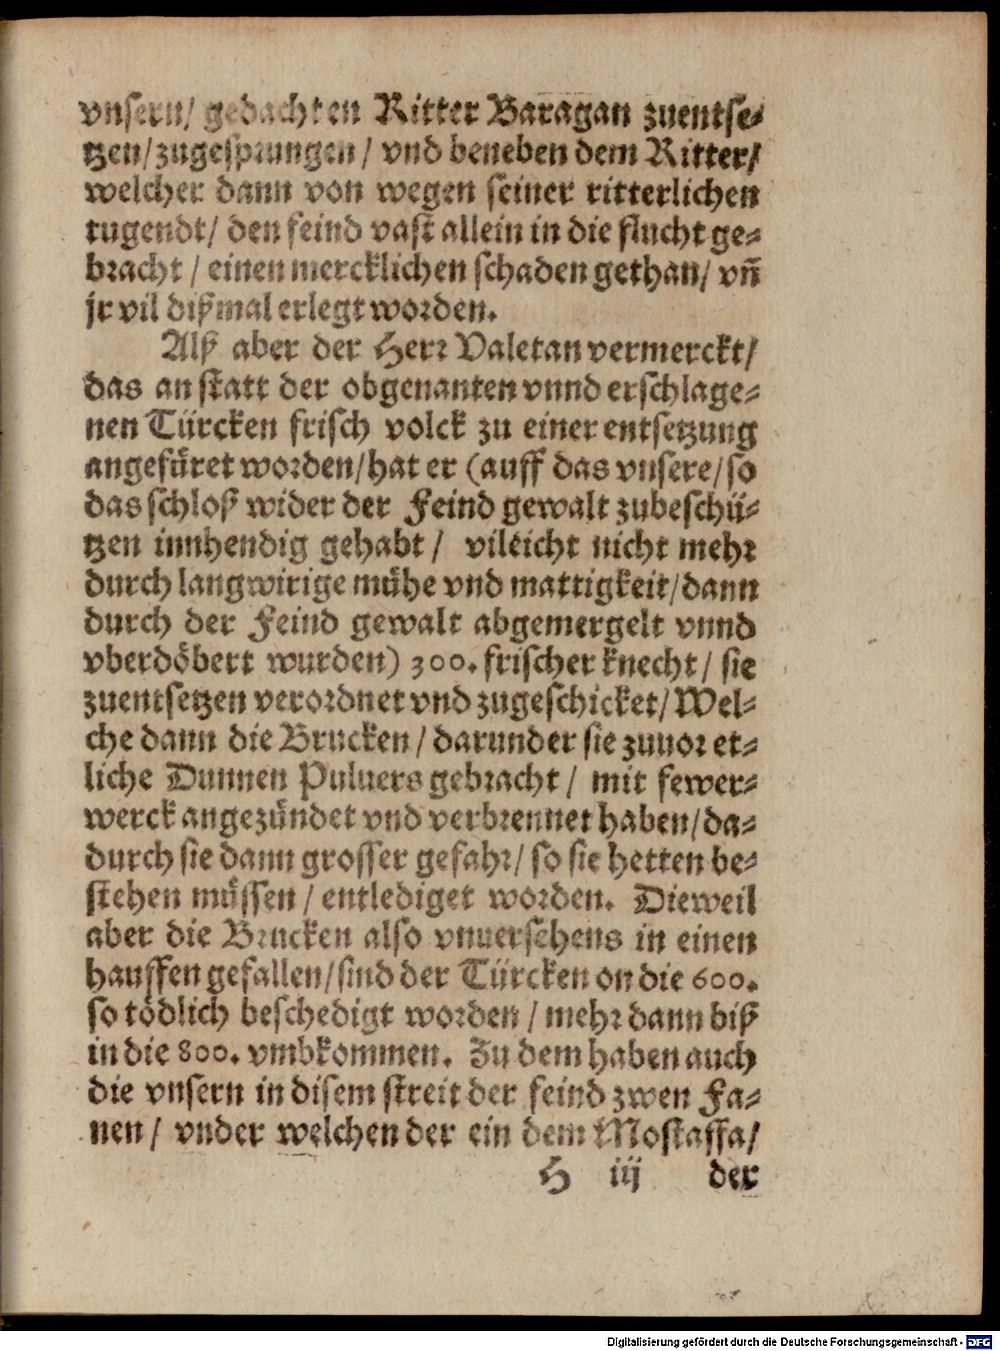 vnsern/ gedachten Ritter Baragan zuentse⸗
tzen/zugesprungen/ vnd beneben dem Ritter/
welcher dann von wegen seiner ritterlichen
tugendt/ den feind vast allein in die flucht ge⸗
bracht/ einen mercklichen schaden gethan/ vñ
jr vil dißmal erlegt worden.
Alß aber der Herr Valetan vermerckt/
das an statt der obgenanten vnnd erschlage⸗
nen Türcken frisch volck zu einer entsetzung
angefüret worden/hat er (auff das vnsere/so
das schloß wider der Feind gewalt zubeschü⸗
tzen innhendig gehabt/ vileicht nicht mehr
durch langwirige mühe vnd mattigkeit/dann
durch der Feind gewalt abgemergelt vnnd
vberdöbert wurden) 300. frischer knecht/ sie
zuentsetzen verordnet vnd zugeschicket/Wel⸗
che dann die Brucken/ darunder sie zuuor et⸗
liche Dunnen Puluers gebracht/ mit fewer⸗
werck angezündet vnd verbrennet haben/da⸗
durch sie dann grosser gefahr/ so sie hetten be⸗
stehen müssen/ entlediget worden. Dieweil
aber die Brucken also vnuersehens in einen
hauffen gefallen/sind der Türcken on die 600.
so tödlich beschedigt worden/ mehr dann biß
in die 800. vmbkommen. Zu dem haben auch
die vnsern in disem streit der feind zwen Fa⸗
nen/ vnder welchen der ein dem Mostaffa/
H iij der
Digitalisierung gefördert durch die Deutsche Forschungsgemeinschaft - DFG